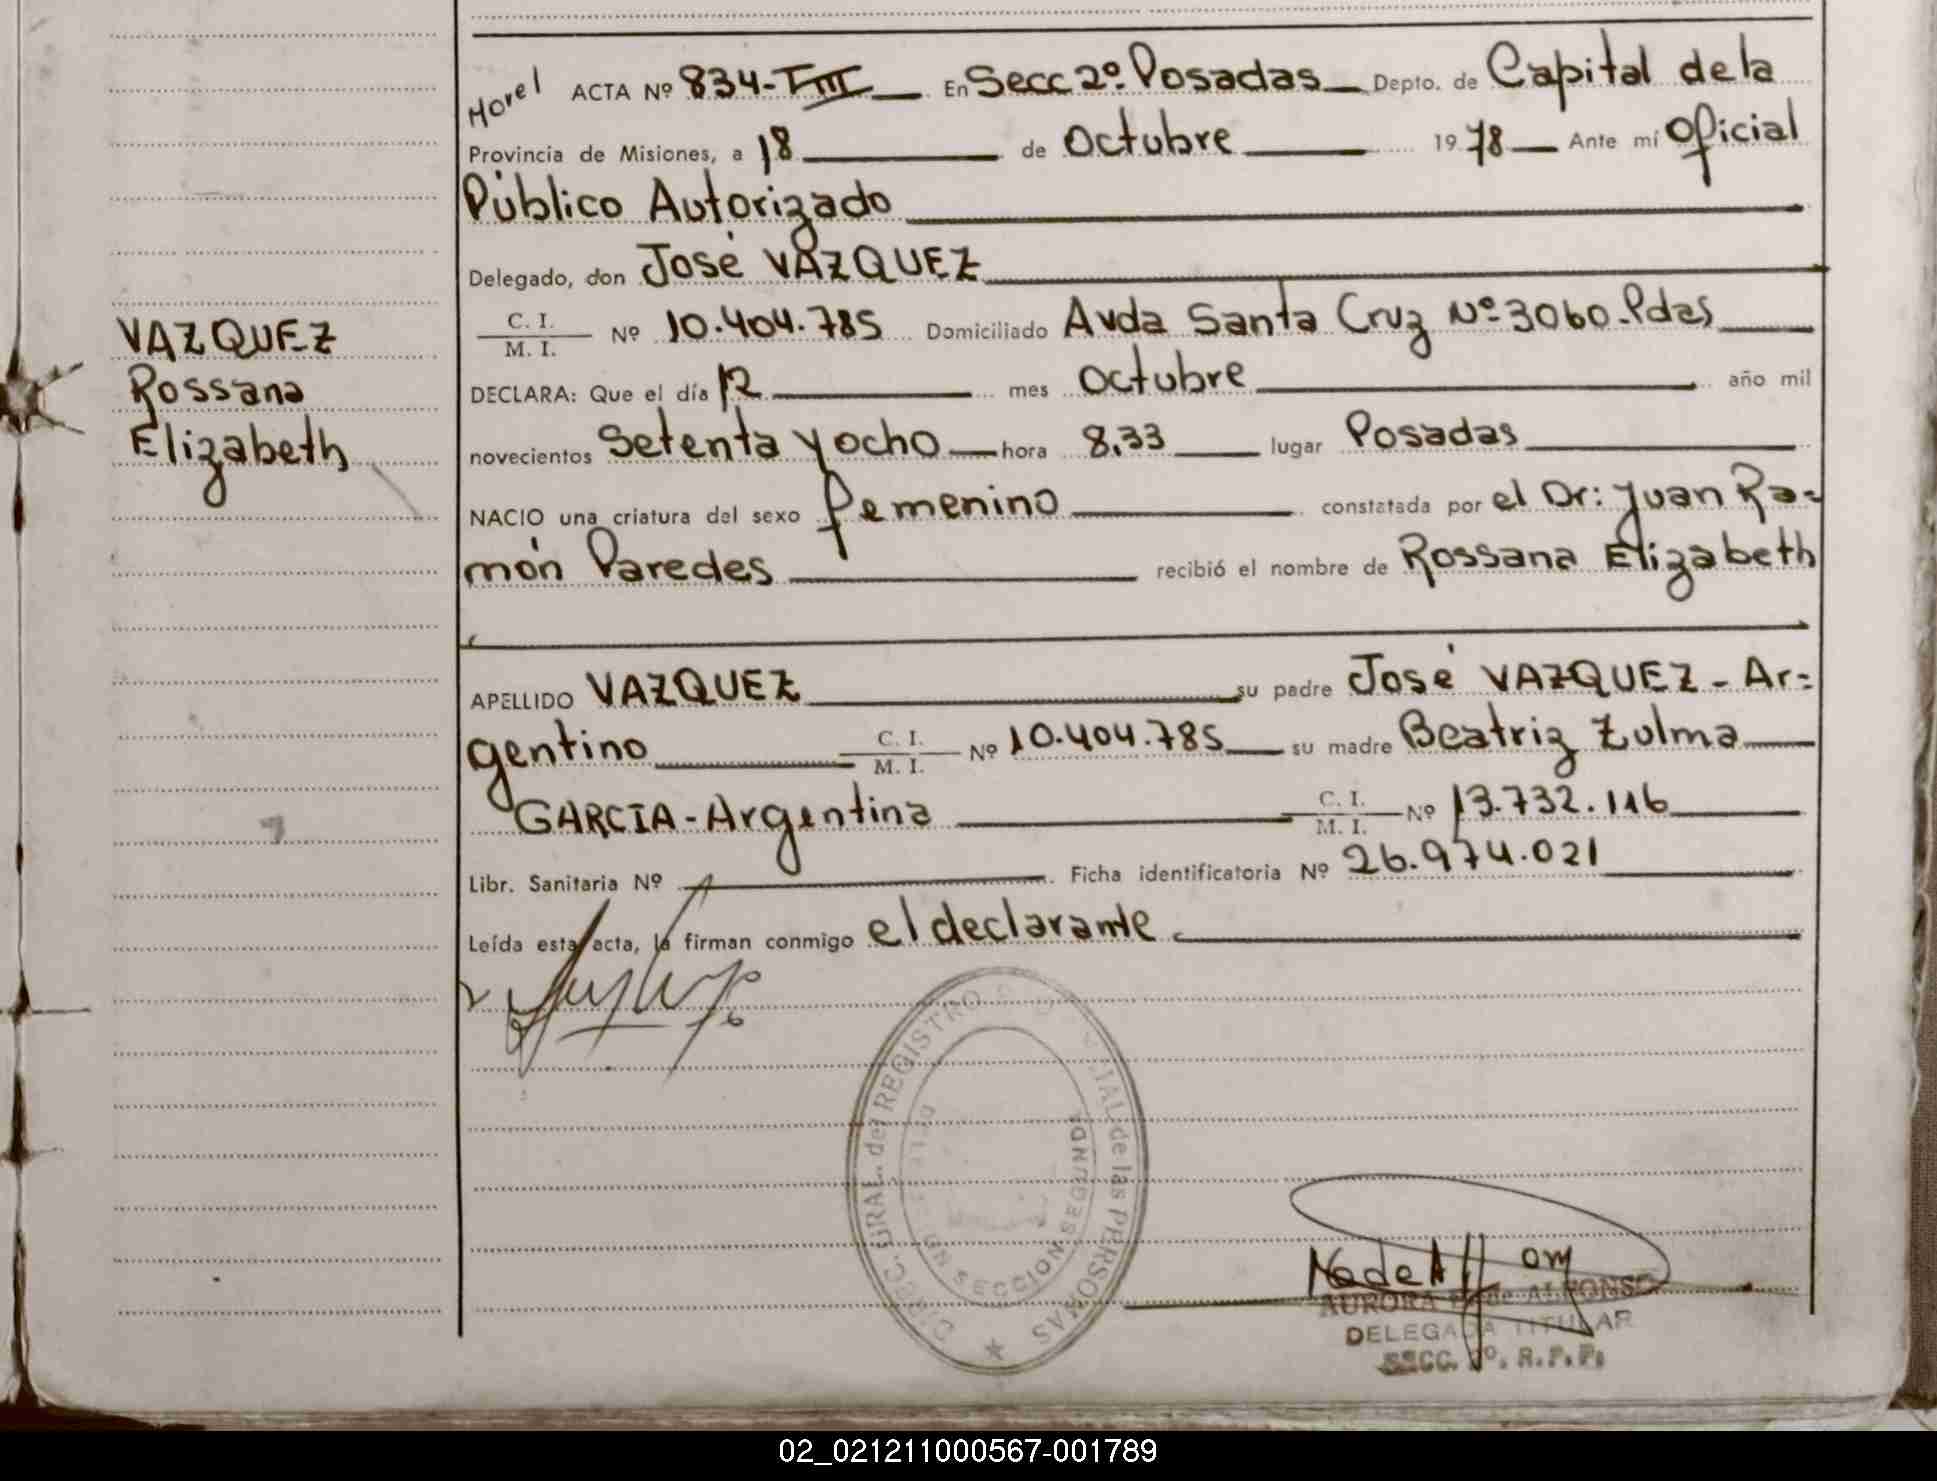 Morel ACTA Nº 834-TIII En Secc 2º Posadas Depto. de Capital de la
Provincia de Misiones, a 18 de Octubre 1978 Ante mí Oficial
Público Autorizado
Delegado, don José VAZQUEZ
C. I.
M. I. Nº 10.404.785 Domiciliado Avda Santa Cruz Nº 3060-Pdas
DECLARA: Que el día 12 mes Octubre año mil
novecientos Setenta y ocho hora 8,33 lugar Posadas
NACIO una criatura del sexo femenino constatada por el Dr: Juan Ra=
món Paredes recibió el nombre de Rossana Elizabeth
APELLIDO VAZQUEZ su padre José VAZQUEZ - Ar=
gentino C. I.
M. I. Nº 10.404.785 su madre Beatriz Zulma
GARCIA - Argentina C. I.
M. I. Nº 13.732.116
Libr. Sanitaria Nº Ficha identificatoria Nº 26.974.021
Leída esta acta, la firman conmigo el declarante
VAZQUEZ
Rossana
Elizabeth
DIREC. GRAL. del REGISTRO PROVINCIAL de las PERSONAS
DELEGACION SECCION SEGUNDA
AURORA de ALFONSO
DELEGADA TITULAR
SECC. 2º. R. P. P.
02_021211000567-001789